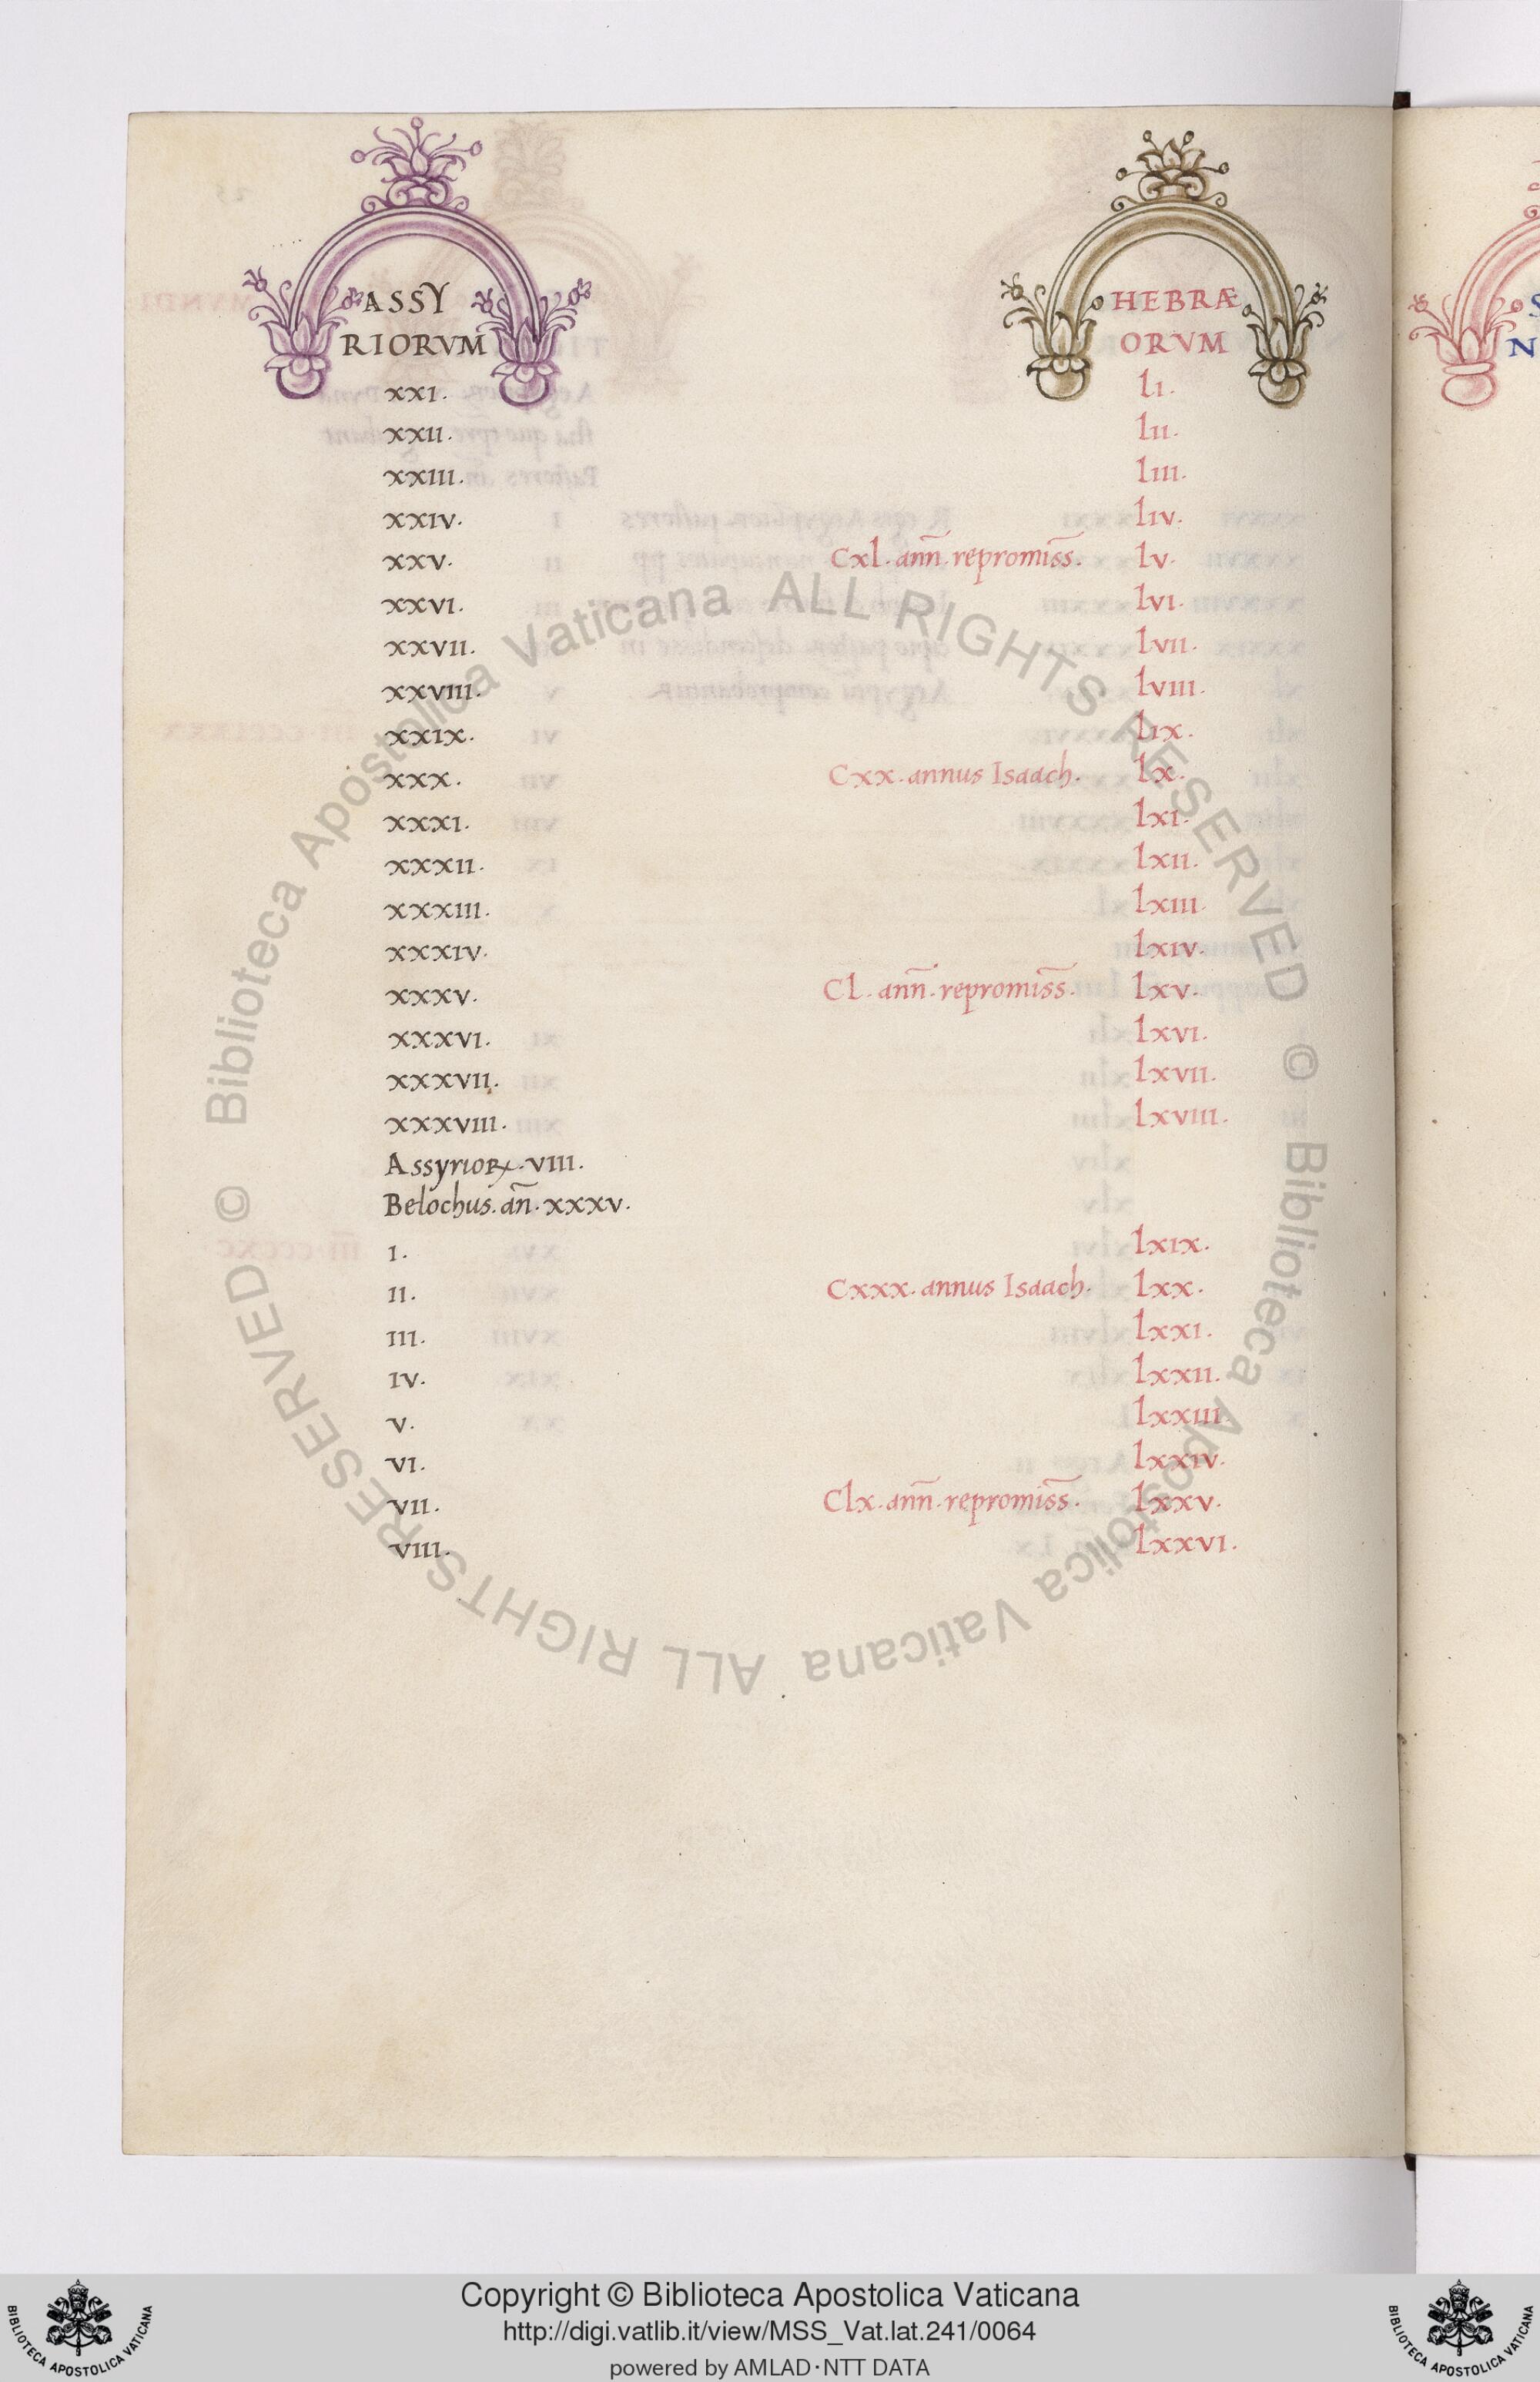 ASSY HEBRÆ
RIORVM ORVM
xxI. lI.
xxII. lII.
xxIII. lIII.
xxIV. lIV.
xxV. Cxl. annͫ. repromiss̅. lV.
xxVI. lVI.
xxVII. lVII.
xxVIII. lVIII.
xxIx. lIx.
xxx. Cxx. annus Isaach. lx.
xxxI. lxI.
xxxII. lxII.
xxxIII. lxIII.
xxxIV. lxIV.
xxxV. Cl. ann̅. repromiss̅. lxV.
xxxVI. lxVI.
xxxVII. lxVII.
xxxVIII. lxVIII.
Assyrioꝝ. VIII.
Belochus. an̅. xxxV.
I. lxIx.
II. Cxxx. annus Isaach. lxx.
III. lxxI.
IV. lxxII.
V. lxxIII.
VI. lxxIV.
VII. Clx. ann̅. repromiss̅. lxxV.
VIII. lxxVI.
© Biblioteca Apostolica Vaticana ALL RIGHTS RESERVED
© Biblioteca Apostolica Vaticana ALL RIGHTS RESERVED
Copyright © Biblioteca Apostolica Vaticana
http://digi.vatlib.it/view/MSS_Vat.lat.241/0064
powered by AMLAD·NTT DATA
BIBLIOTECA APOSTOLICA VATICANA
BIBLIOTECA APOSTOLICA VATICANA